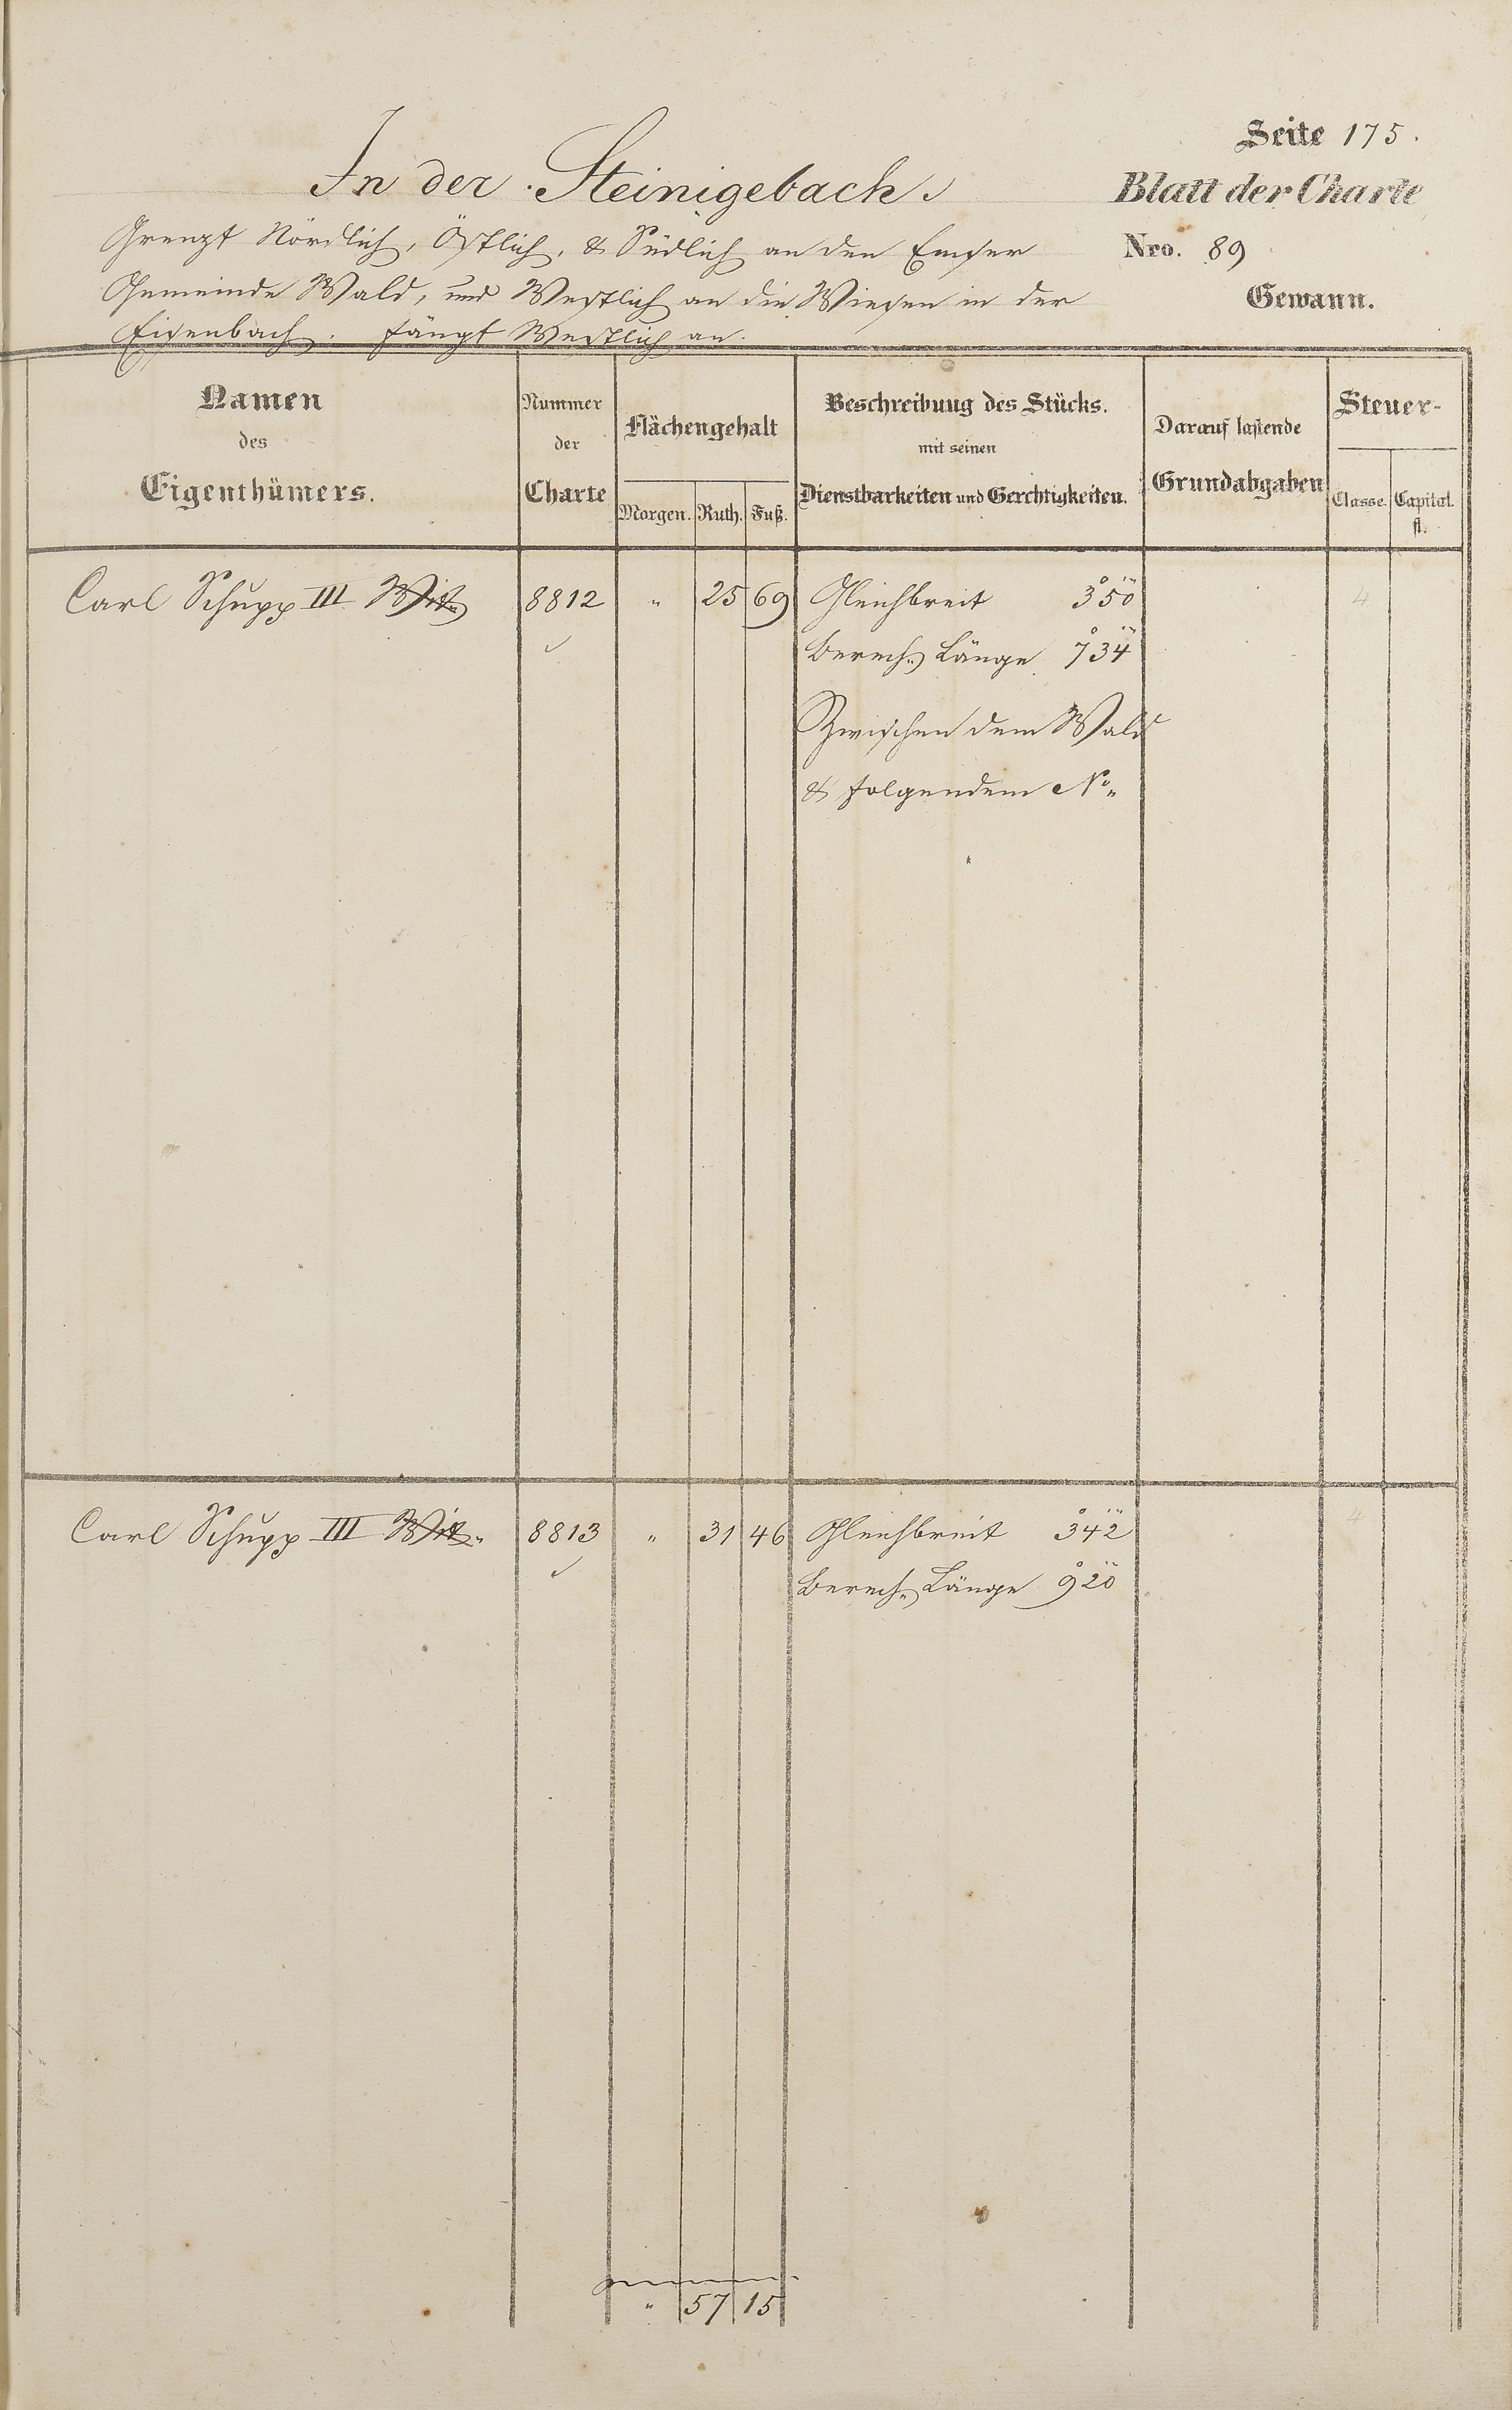 Seite 175.
In der Steinigebach.
Blatt der Charte
Grenzt Nördlich, Östlich, & Südlich an den Emser
Nro. 89
Gemeinde Wald, und Westlich an die Wiesen in der
Gewann.
Eisenbach. fängt Westlich an.
Namen des Eigenthümers.
Nummer der Charte
Flächengehalt
Morgen. Ruth. Fuß.
Beschreibung des Stücks.
mit seinen
Dienstbarkeiten und Gerechtigkeiten.
Darauf lastende
Grundabgaben
Steuer-
Classe. Capital.
fl.
Carl Schupp III Wit. 8812 " 25 69 Gleichbreit 350 4
Berech. Länge 734
Zwischen dem Wald
& folgendem No.
Carl Schupp III Wit. 8813 " 31 46 Gleichbreit 342 4
Berech. Länge 920
" 57 15